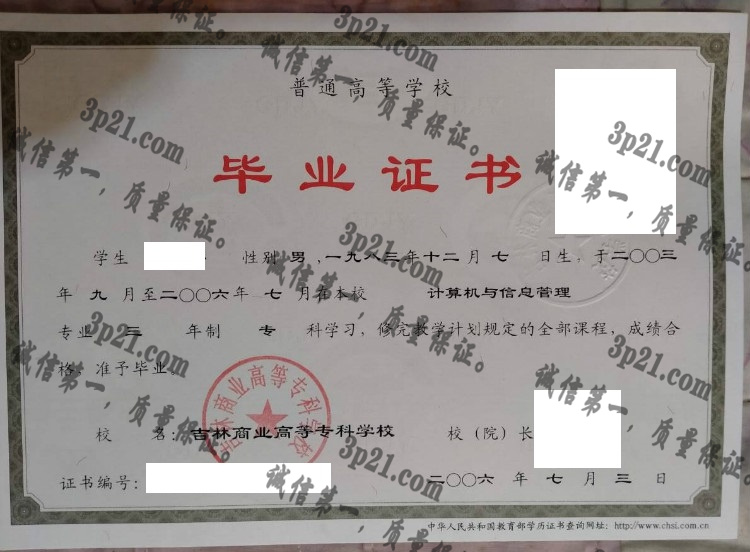 普通高等学校
毕业证书
学生 性别 男，一九八三年十二月七 日生，于二〇〇三
年 九 月至二〇〇六年 七 月在本校 计算机与信息管理
专业 三 年制 专 科学习，修完教学计划规定的全部课程，成绩合
格，准予毕业。
吉林商业高等专科学校
校 名：吉林商业高等专科学校 校（院）长
证书编号： 二〇〇六年 七 月 三 日
中华人民共和国教育部学历证书查询网址：http://www.chsi.com.cn
3p21.com
诚信第一，质量保证。
3p21.com
诚信第一，质量保证。
3p21.com
诚信第一，质量保证。
3p21.com
诚信第一，质量保证。
3p21.com
诚信第一，质量保证。
3p21.com
诚信第一，质量保证。
3p21.com
诚信第一，质量保证。